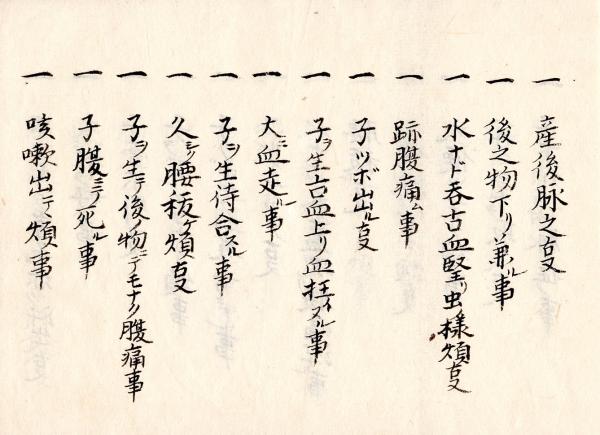 一 産後脉之叓
一 後之物下リ兼ル事
一 水ナド呑古血堅リ虫ノ様煩叓
一 跡腹痛ム事
一 子ツボ出ル叓
一 子ヲ生古血上リ血狂イスル事
一 大ニ血走ル事
一 子ヲ生待合スル事
一 久シク腰抜ケ煩叓
一 子ヲ生テ後ノ物ニテモナク腹痛事
一 子腹ニテ死ル事
一 咳嗽出テ煩事